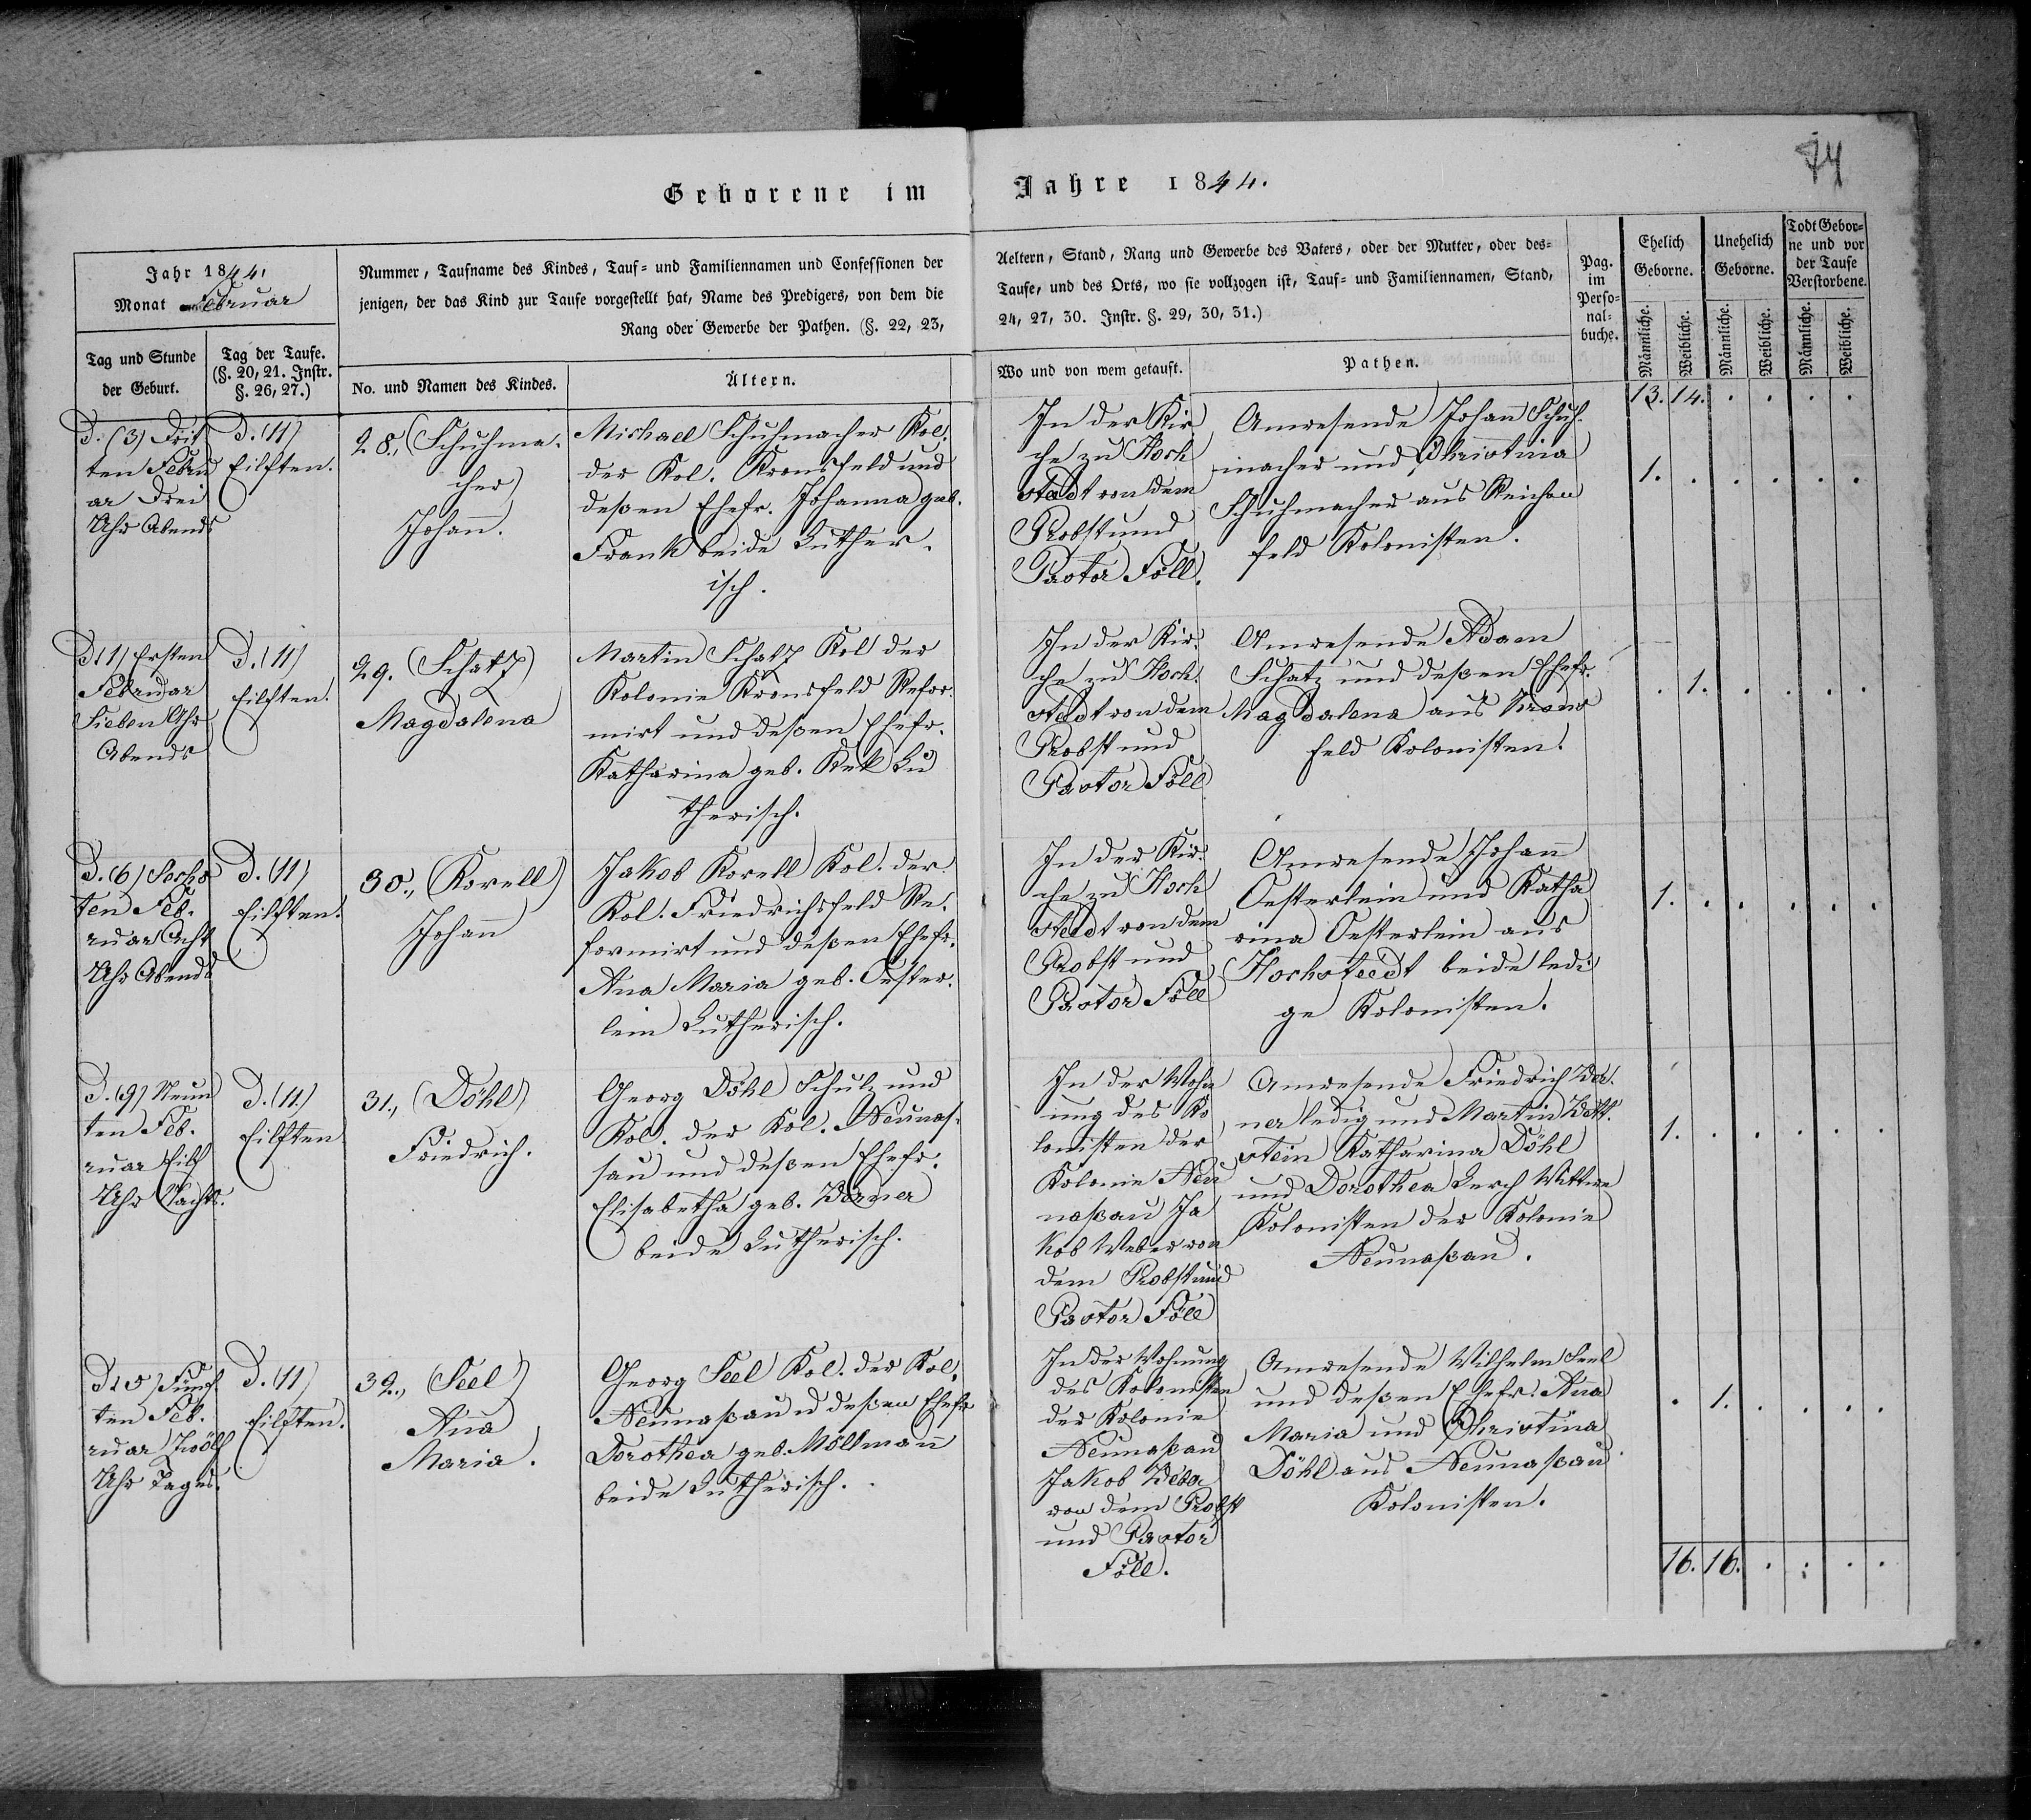 74
Geborene im Jahre 1844.
Jahr 1844.
Monat Februar
Nummer, Taufname des Kindes, Tauf- und Familiennamen und Confessionen der
jenigen, der das Kind zur Taufe vorgestellt hat, Name des Predigers, von dem die
Rang oder Gewerbe der Pathen. (§. 22, 23,
Aeltern, Stand, Rang und Gewerbe des Vaters, oder der Mutter, oder des-
Taufe, und des Orts, wo sie vollzogen ist, Tauf- und Familiennamen, Stand,
24, 27, 30. Instr. §. 29, 30, 31.)
Pag.
im
Perso-
nal-
buche.
Ehelich
Geborne.
Unehelich
Geborne.
Todt Gebor-
ne und vor
der Taufe
Verstorbene.
Männliche.
Weibliche.
Männliche.
Weibliche.
Männliche.
Weibliche.
Tag und Stunde
der Geburt.
Tag der Taufe.
(§. 20, 21. Instr.
§. 26, 27.)
No. und Namen des Kindes.
Ältern.
Wo und von wem getauft.
Pathen.
13. 14. . . . .
D. (3) Drit
ten Febru
ar Drei
Uhr Abends
D. (11)
Eilften.
28., (Schuhma-
cher)
Johann.
Michael Schuhmacher Kol.
der Kol. Kronsfeld und
deßen Ehefr. Johanna geb.
Frank beide Luther-
isch.
In der Kir
che zu Hoch
stadt von dem
Probst und
Pastor Föll.
Anwesende Johann Schuh-
macher und Christina
Schuhmacher aus Reichen
feld Kolonisten.
1. . . . . .
D. (1) Ersten
Februar
Sieben Uhr
Abends
D. (11)
Eilften.
29. (Schatz)
Magdalena
Martin Schatz Kol der
Kolonie Kronsfeld Refor-
mirt und deßen Ehefr.
Katharina geb. Kek Lu
therisch.
In der Kir-
che zu Hoch-
stadt von dem
Probst und
Pastor Föll
Anwesende Adam
Schatz und deßen Ehefr.
Magdalena aus Krons
feld Kolonisten.
. 1. . . . .
D. (6) Sechs
ten Feb-
ruar Acht
Uhr Abends
D. (11)
Eilften.
30., (Korell)
Johann
Jakob Korell Kol. der
Kol. Friedrichsfeld Re-
formirt und deßen Ehefr.
Anna Maria geb. Oester-
lein Lutherisch.
In der Kir-
che zu Hoch
stadt von dem
Probst und
Pastor Föll
Anwesende Johann
Oesterlein und Katha
rina Oesterlein aus
Hochstedt beide ledi
ge Kolonisten.
1. . . . . .
D. (9) Neun
ten Feb-
ruar Eilf
Uhr Nachts.
D. (11.)
Eilften
31., (Döhl)
Friedrich.
Georg Döhl Schulz und
Kol. der Kol. Neunas-
sau und deßen Ehefr.
Elisabetha geb. Werner
beide Lutherisch.
In der Wohn
ung des Ko
lonisten der
Kolonie Neu
naßau Ja
kob Weber von
dem Probst und
Pastor Föll
Anwesende Friedrich Wer-
ner ledig und Martin Wett-
stein Katharina Döhl
und Dorothea Lerch Wittwe
Kolonisten der Kolonie
Neunaßau.
1. . . . . .
D. (5) Fünf
ten Feb-
ruar Zwölf
Uhr Tages.
D. (11)
Eilften.
32., (Seel)
Anna
Maria.
Georg Seel Kol. der Kol.
Neunaßau u deßen Ehefr
Dorothea geb. Möllmann
beide Lutherisch.
In der Wohnung
des Kolonisten
der Kolonie
Neunaßau
Jakob Weber
von dem Probst
und Pastor
Föll.
Anwesende Wilhelm Seel
und deßen Ehefr. Anna
Maria und Christina
Döhl aus Neunaßau
Kolonisten.
. 1. . . . .
16. 16. . . . .